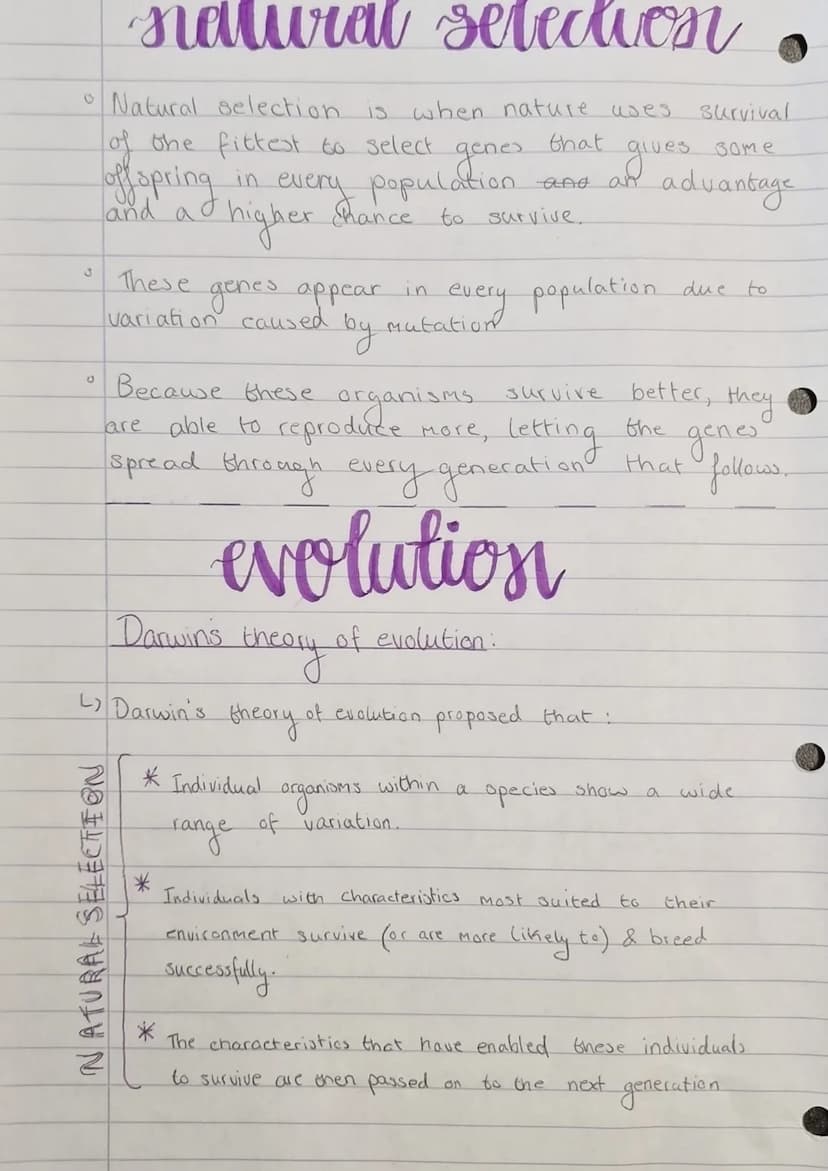 natural selection
° Natural selection is when nature uses survival
of the fittest to select genes that gives some
offspring in every population and an advantage
and a higher chance to survive.
° These genes appear in every population due to
variation caused by mutation
° Because these organisms survive better, they
are able to reproduce more, letting the genes
spread through every generation that follows.
evolution
Darwin's theory of evolution:
↳ Darwin's theory of evolution proposed that :
NATURAL SELECTION
* Individual organisms within a species show a wide
range of variation.
* Individuals with characteristics most suited to their
environment survive (or are more likely to) & breed
successfully.
* The characteristics that have enabled these individuals
to survive are then passed on to the next generation